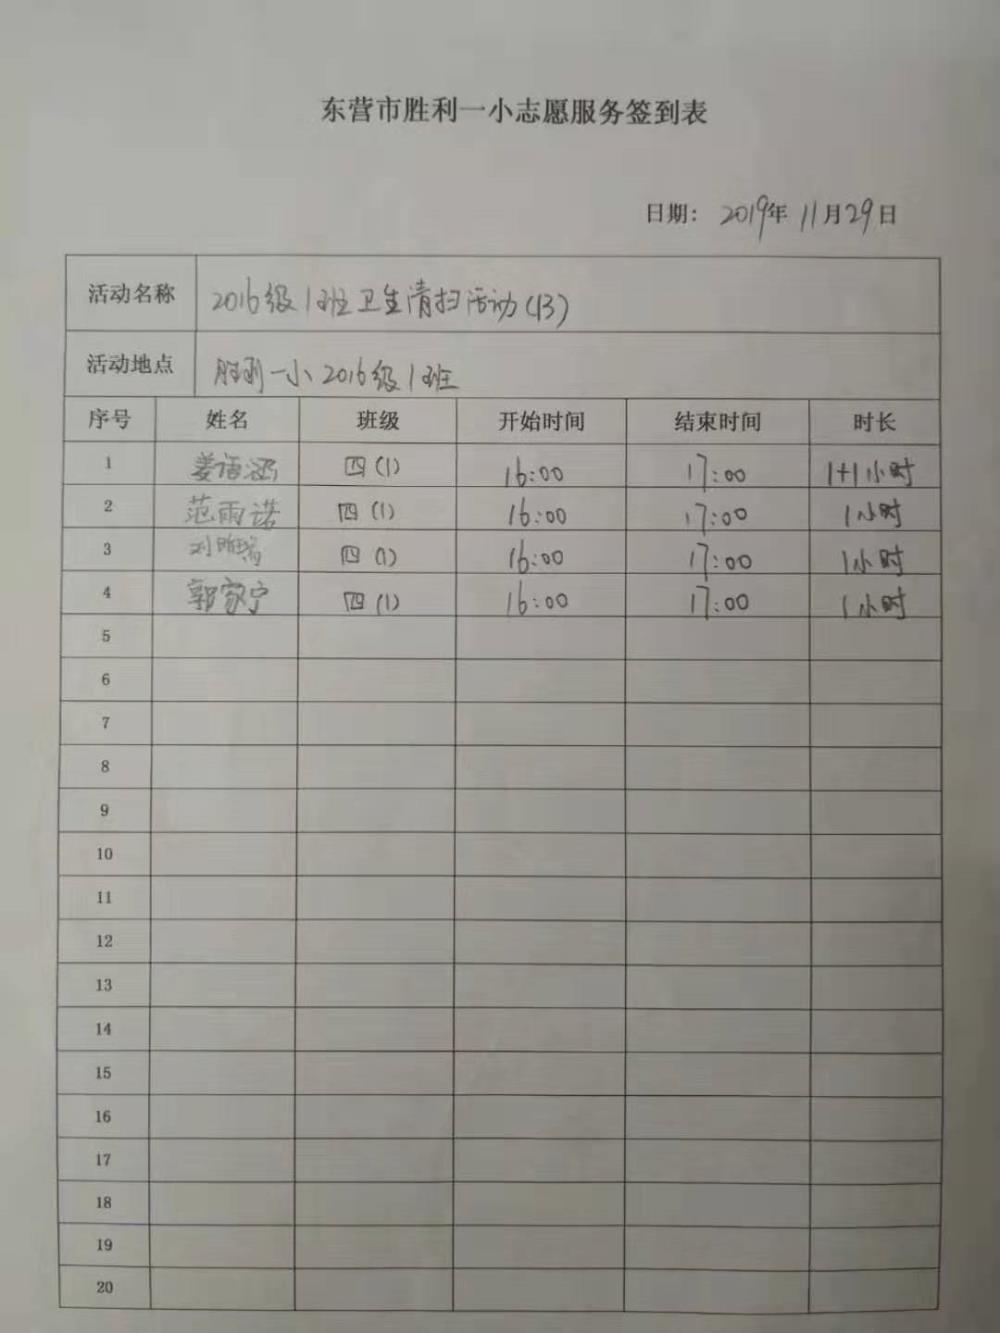 东营市胜利一小志愿服务签到表
日期： 2019年 11月29日
活动名称 2016级1班卫生清扫活动(13)
活动地点 胜利一小2016级1班
序号 姓名 班级 开始时间 结束时间 时长
1 姜语涵 四(1) 16:00 17:00 1+1小时
2 范雨诺 四(1) 16:00 17:00 1小时
3 刘 四(1) 16:00 17:00 1小时
4 郭家宁 四(1) 16:00 17:00 1小时
5
6
7
8
9
10
11
12
13
14
15
16
17
18
19
20